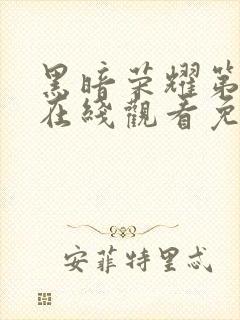 黑暗荣耀第
在綫觀看免
安菲特里忒